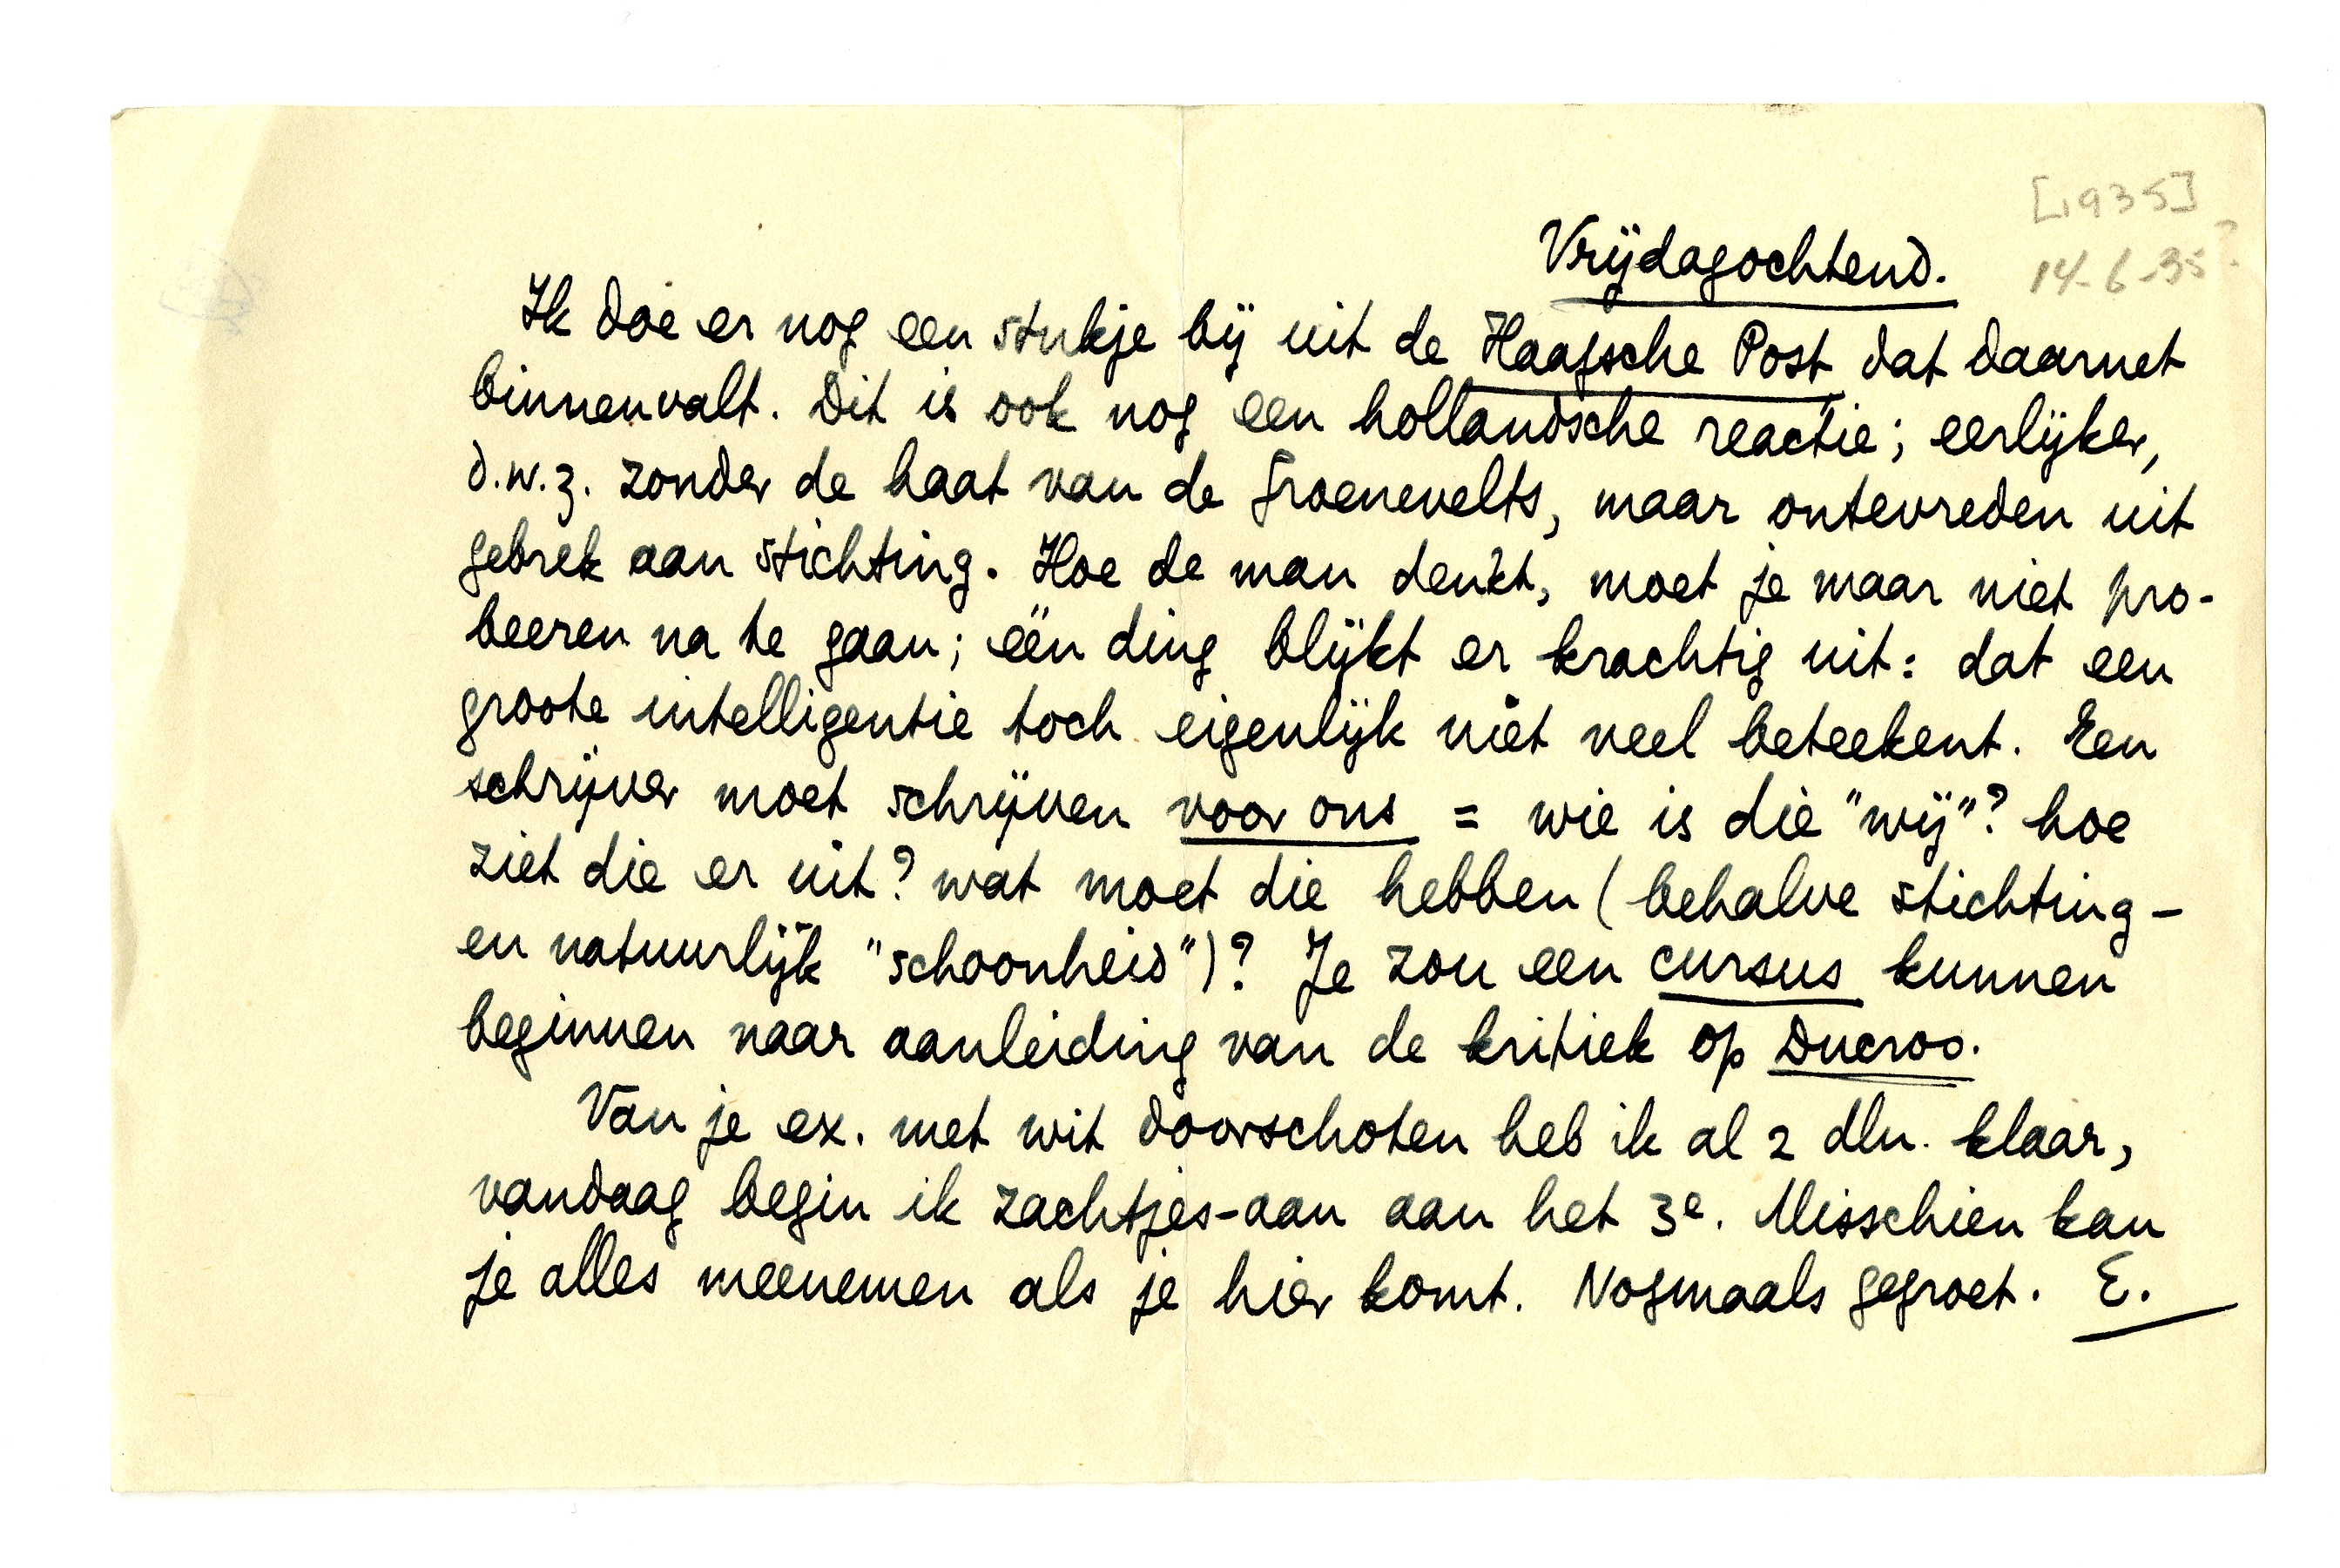 [1935]
14-6-35?
Vrijdagochtend.
Ik doe er nog een stukje bij uit de Haagsche Post dat daarnet
binnenvalt. Dit is ook nog een hollandsche reactie; eerlijker,
d.w.z. zonder de haat van de Groenevelts, maar ontevreden uit
gebrek aan stichting. Hoe de man denkt, moet je maar niet pro-
beeren na te gaan; één ding blijkt er krachtig uit: dat een
groote intelligentie toch eigenlijk niet veel beteekent. Een
schrijver moet schrijven voor ons = wie is die "wij"? hoe
ziet die er uit? wat moet die hebben (behalve stichting -
en natuurlijk "schoonheid")? Je zou een cursus kunnen
beginnen naar aanleiding van de kritiek op Ducroo.
Van je ex. met wit doorschoten heb ik al 2 dln. klaar,
vandaag begin ik zachtjes-aan aan het 3e. Misschien kan
je alles meenemen als je hier komt. Nogmaals gegroet. E.